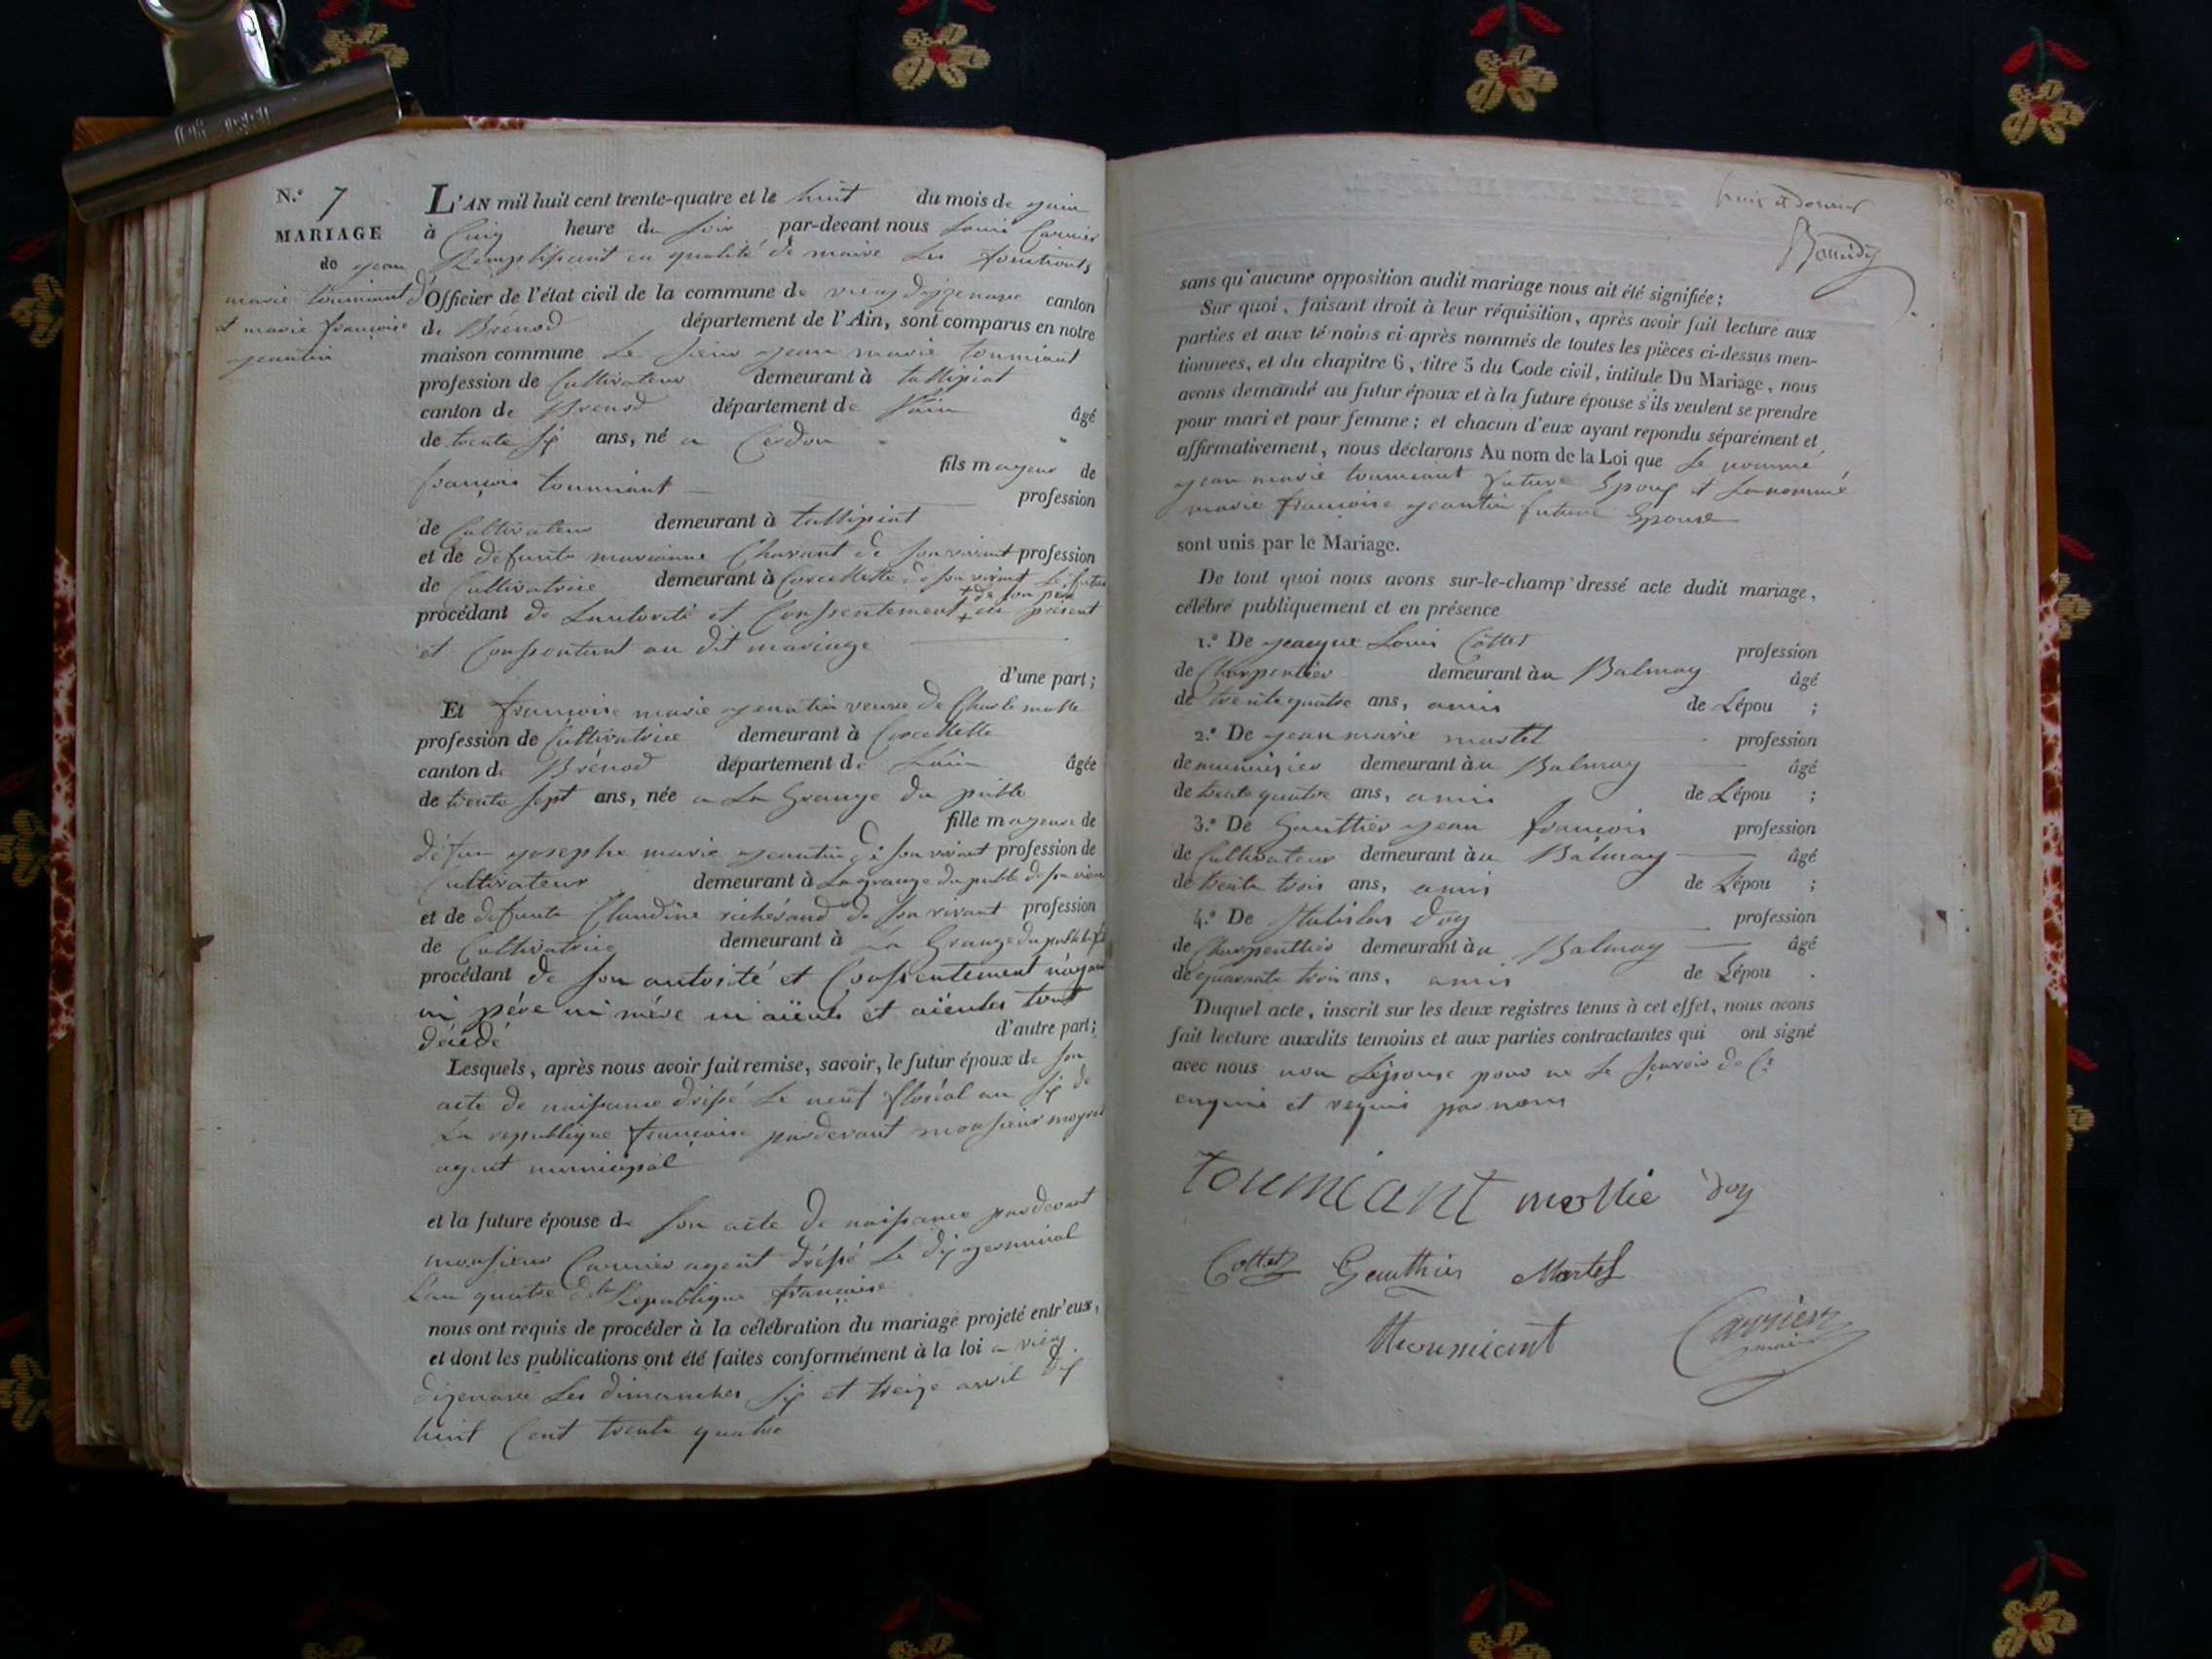 N.º 7
MARIAGE
de jean
marie toumiant
et marie françoise
jeantin
L'AN mil huit cent trente-quatre et le huit du mois de juin
à Cinq heure du soir par-devant nous Louis Carrier
Remplissant en qualité de maire les fonctions
d'Officier de l'état civil de la commune de vieu dizenave canton
de Brénod département de l'Ain, sont comparus en notre
maison commune Le sieur jean marie toumiant
profession de Cultivateur demeurant à tallipiat
canton de Brenod département de l'ain âgé
de trente six ans, né a Cerdon
fils majeur de
françois toumiant profession
de Cultivateur demeurant à tallipiat
et de defunte marianne Charvant de son vivant profession
de Cultivatrice demeurant à Corcellette de son vivant Le futur
procédant de Lautorité et Consentement + de son père + ici présent
et Consentant au dit mariage
d'une part;
Et françoise marie jeantin veuve de Charle molle
profession de Cultivatrice demeurant à Corcellette
canton de Brénod département de Lain âgée
de trente sept ans, née a La Grange du pible
fille majeure de
défun josephe marie jeantin de son vivant profession de
Cultivateur demeurant à Lagrange du pible de son vivan
et de defunte Claudine richerand de son vivant profession
de Cultivatrice demeurant à La Grange du pible
procédant de son autorité et Consentement n'ayant
ni père ni mère ni aïeuls et aïeules tout
décédé d'autre part;
Lesquels, après nous avoir fait remise, savoir, le futur époux de son
acte de naissance dressé Le neuf floréal an six de
La republique françoise pardevant monsieur moyret
agent municipal
et la future épouse de son acte de naissance pardevant
monsieur Carrier agent dréssé Le dix germinal
L'an quatre de la République françoise
nous ont requis de procéder à la célébration du mariage projeté entr'eux,
et dont les publications ont été faites conformément à la loi a vieu
dizenave Les dimanches six et treize avril dix
huit Cent trente quatre
huit et dernier
sans qu'aucune opposition audit mariage nous ait été signifiée;
Sur quoi, faisant droit à leur réquisition, après avoir fait lecture aux
parties et aux témoins ci-après nommés de toutes les pièces ci-dessus men-
tionnees, et du chapitre 6, titre 5 du Code civil, intitule Du Mariage, nous
avons demandé au futur époux et à la future épouse s'ils veulent se prendre
pour mari et pour femme; et chacun d'eux ayant repondu séparément et
affirmativement, nous déclarons Au nom de la Loi que Le nommé
jean marie toumiant future Epoux et La nommé
marie françoise jeantin future Epouse
sont unis par le Mariage.
De tout quoi nous avons sur-le-champ dressé acte dudit mariage,
célébré publiquement et en présence
1.º De jeacque Louis Cottet profession
de Charpentier demeurant àu Balmay âgé
de trente quatre ans, amis de Lépou ;
2.º De jean marie martel profession
de menuisier demeurant àu Balmay âgé
de trente quatre ans, amis de Lépou ;
3.º De Gautthier jean françois profession
de Cultivateur demeurant àu Balmay âgé
de trente trois ans, amis de Lépou ;
4.º De Stalislas doy profession
de Charpenttier demeurant àu Balmay âgé
de quarante trois ans, amis de Lépou .
Duquel acte, inscrit sur les deux registres tenus à cet effet, nous avons
fait lecture auxdits temoins et aux parties contractantes qui ont signé
avec nous non Lépouse pour ne le sçavoir de Ce
enquis et requis par nous
toumiant mollie doy
Cottet Gauthier Martel
toumiant Carrier
maire